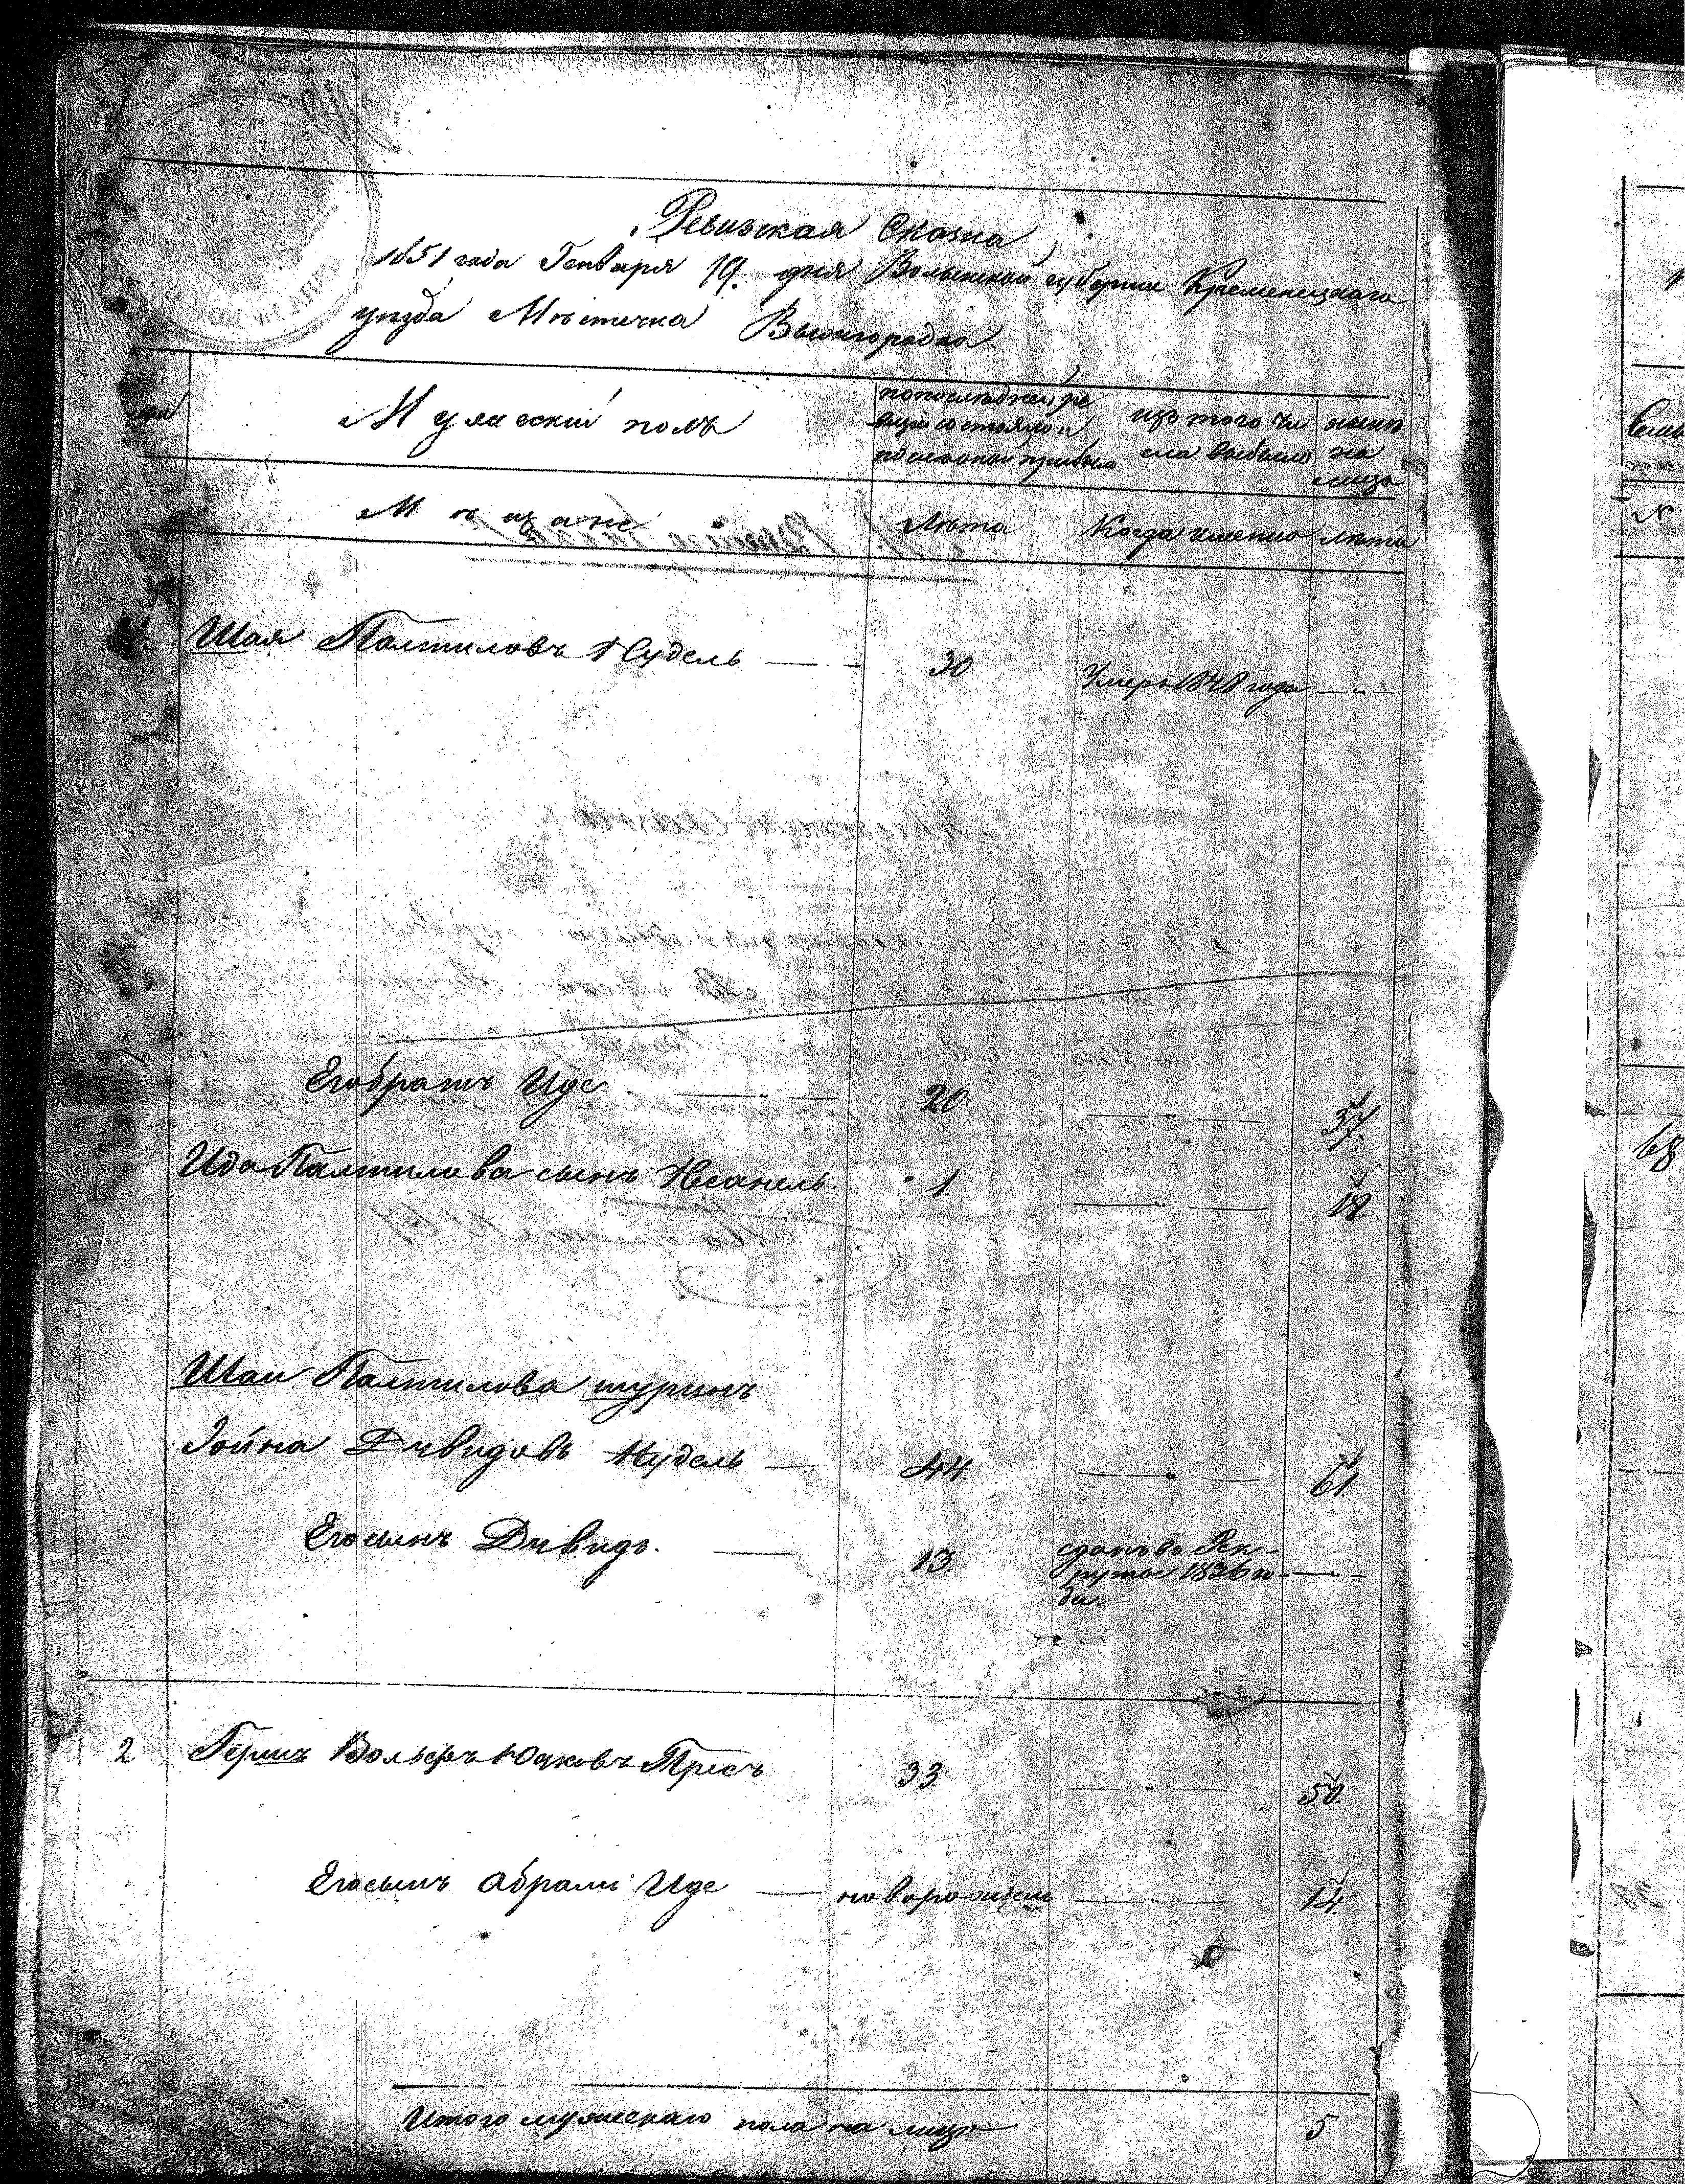 Ревизская Сказка
1851 года Генваря 19. дня Волынской губернии Кременецкаго
уезда Мѣстечка Вышгородка
Мужеский полъ
по последней ре
визіи состояло и
после оной прибыло
изъ того чи
сла выбыло
нынѣ
на
лицо
Мѣщане
Лѣта
Когда именно
лѣта
Шая Палтиловъ Нудель
30
Умеръ 1848 года
Его братъ Иде
20.
37.
Идо Палтилова сынъ Несанель
1.
18.
Шаи Палтилова шуринъ
Іойна Дивидовъ Нудель
44
61.
Его сынъ Дивидъ.
13.
сданъ въ Рек-
руты 1836 го-
да.
2 Гершъ Вольфъ Юдковъ Пресъ
33.
50.
Его сынъ Абрамъ Иде
новорожденъ
14.
Итого мужескаго пола на лицо
5
68